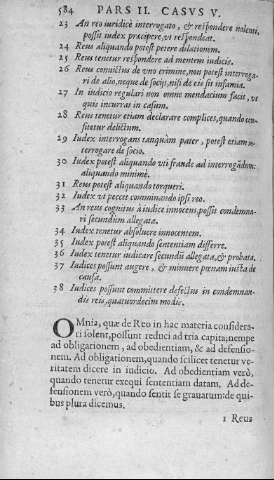 584 PARS II. CASVS V.
23 An reo iuridicè interrogato, & respondere nolenti,
possit iudex præcipere, vt respondeat.
24 Reus aliquando potest petere dilationem.
25 Reus tenetur respondere ad mentem iudicis.
26 Reus conuictus de vno crimine, non potest interroga-
ri de alio, neque de socijs, nisi de eis sit infamia.
27 In iudicio regulari non omne mendacium facit, vt
quis incurrat in casum.
28 Reus tenetur etiam declarare complices, quando cen-
sitetur delictum.
29 Iudex interrogans tanquàm pater, potest etiam in-
terrogare de socio.
30 Iudex potest aliquando vti fraude ad interrogãdum:
aliquando minimè.
31 Reus potest aliquando torqueri.
32 Iudex vt peccet comminando ipsi reo.
33 An reus cognitus à iudice innocens, possit condemna-
ri secundùm allegata.
34 Iudex tenetur absoluere innocentem.
35 Iudex potest aliquando sententiam differre.
36 Iudex tenetur iudicare secundũ allegata, & probata.
37 Iudices possunt augere, & minuere pœnam iusta de
causa.
38 Iudices possunt committere defectus in condemnan-
dis reis, quatuordecim modis.
OMnia, quæ de Reo in hac materia considera-
ri solent, possunt reduci ad tria capita; nempe
ad obligationem, ad obedientiam, & ad defensio-
nem. Ad obligationem, quando scilicet tenetur ve-
ritatem dicere in iudicio. Ad obedientiam verò,
quando tenetur exequi sententiam datam. Ad de-
fensionem verò, quando sentit se grauatum: de qui-
bus plura dicemus.
1 Reus